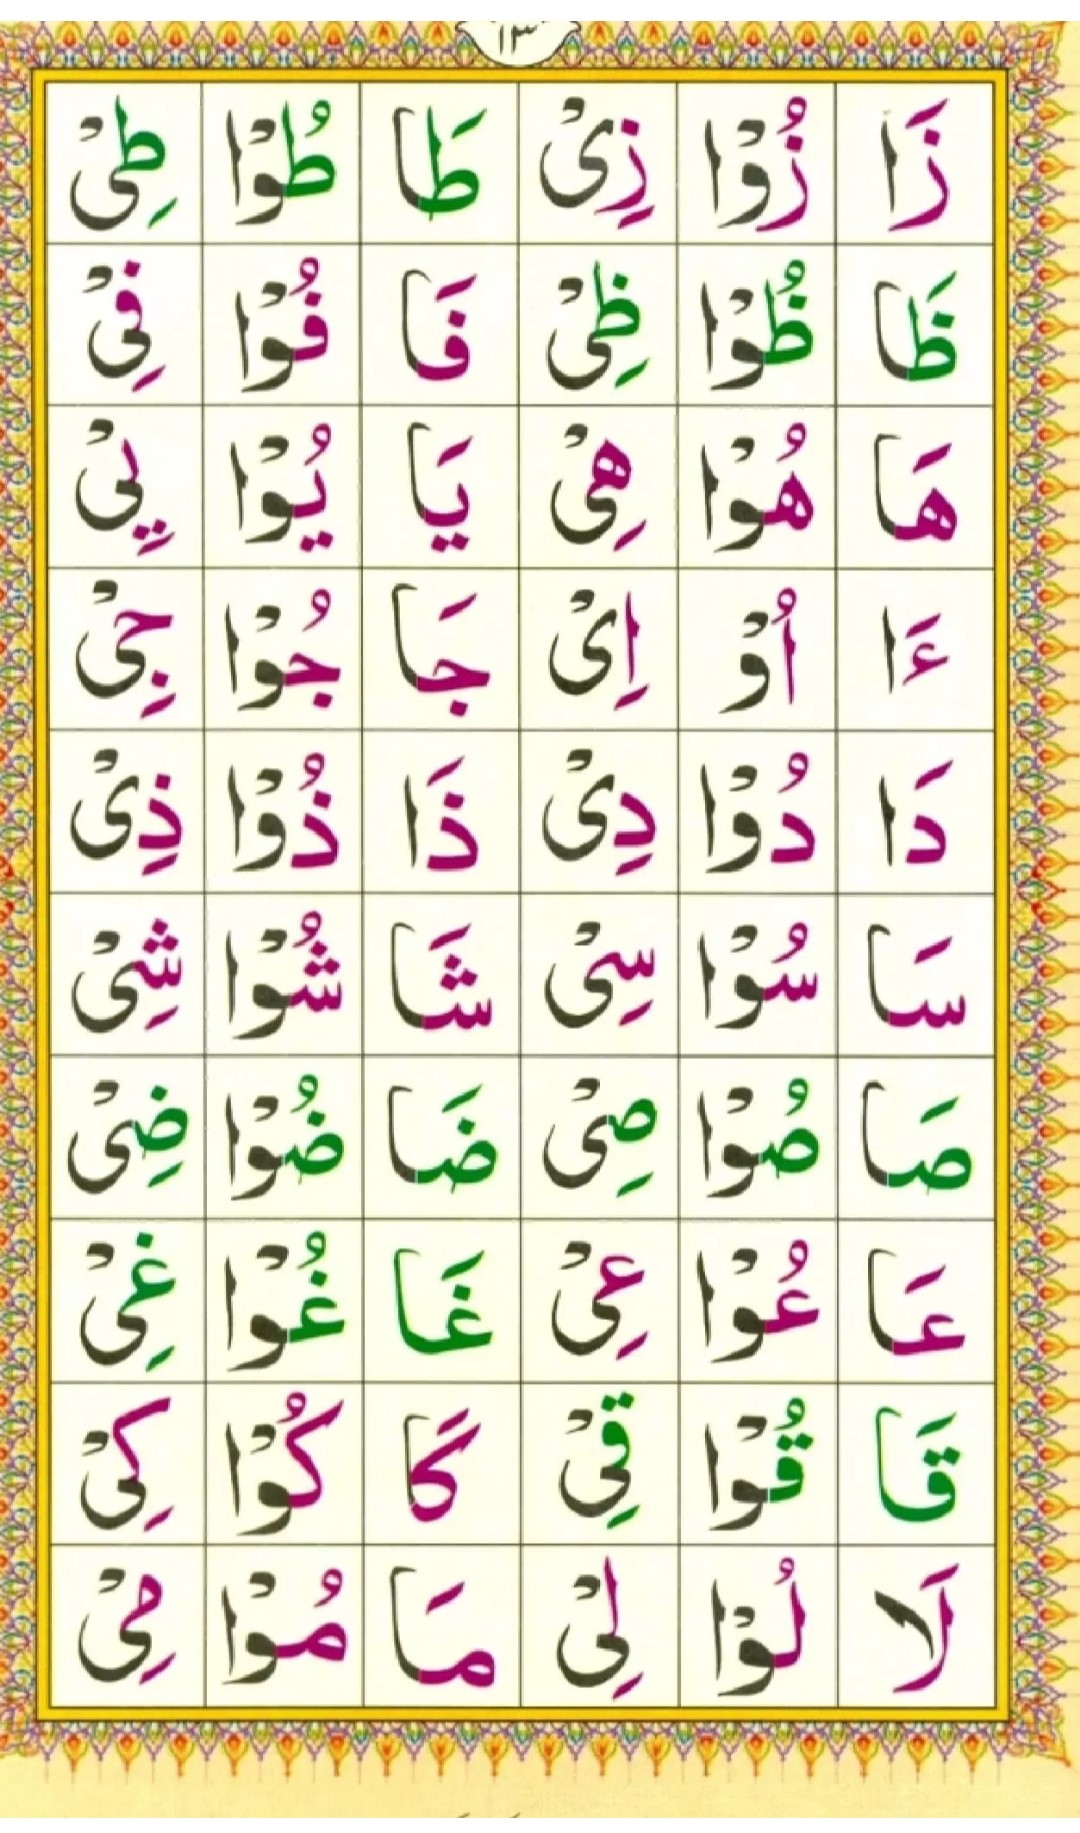 ١٣
زَا زُوْا زِىْ طَا طُوْا طِىْ
ظَا ظُوْا ظِىْ فَا فُوْا فِىْ
هَا هُوْا هِىْ يَا يُوْا يِىْ
ءَا اُوْ اِىْ جَا جُوْا جِىْ
دَا دُوْا دِىْ ذَا ذُوْا ذِىْ
سَا سُوْا سِىْ شَا شُوْا شِىْ
صَا صُوْا صِىْ ضَا ضُوْا ضِىْ
عَا عُوْا عِىْ غَا غُوْا غِىْ
قَا قُوْا قِىْ كَا كُوْا كِىْ
لَا لُوْا لِىْ مَا مُوْا مِىْ